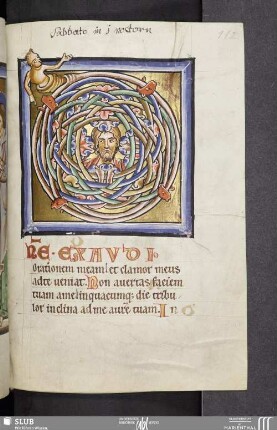 Sabbato in j nocturn
112
NE · EXAUDI
orationem meam! et clamor meus
ad te veniat. Non avertas faciem
tuam a me! in quacumq; die tribu-
lor inclina ad me aurē tuam. In q
SLUB
MARIENTHAL